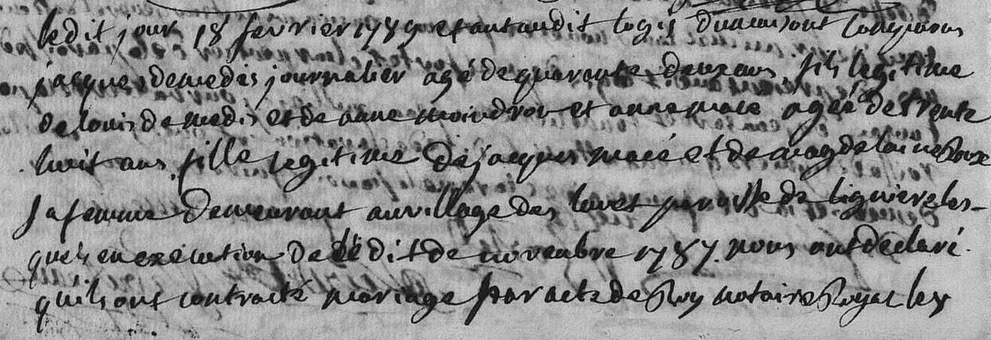 ledit jour 18 fevrier 1789 etant audit logis devant sont comparus
jacques demedis journalier agé de quarante deux ans fils legitime
de louis demedis et de anne et anne macé agéé de trente
huit ans fille legitime de jacques macé et de magdelaine Roux
sa femme demeurant au village des paroisse de ligniere les-
quels en execution de lé dit de novembre 1787 nous ont declaré
quils ont contracté mariage par acte de Roy notaire Royal les